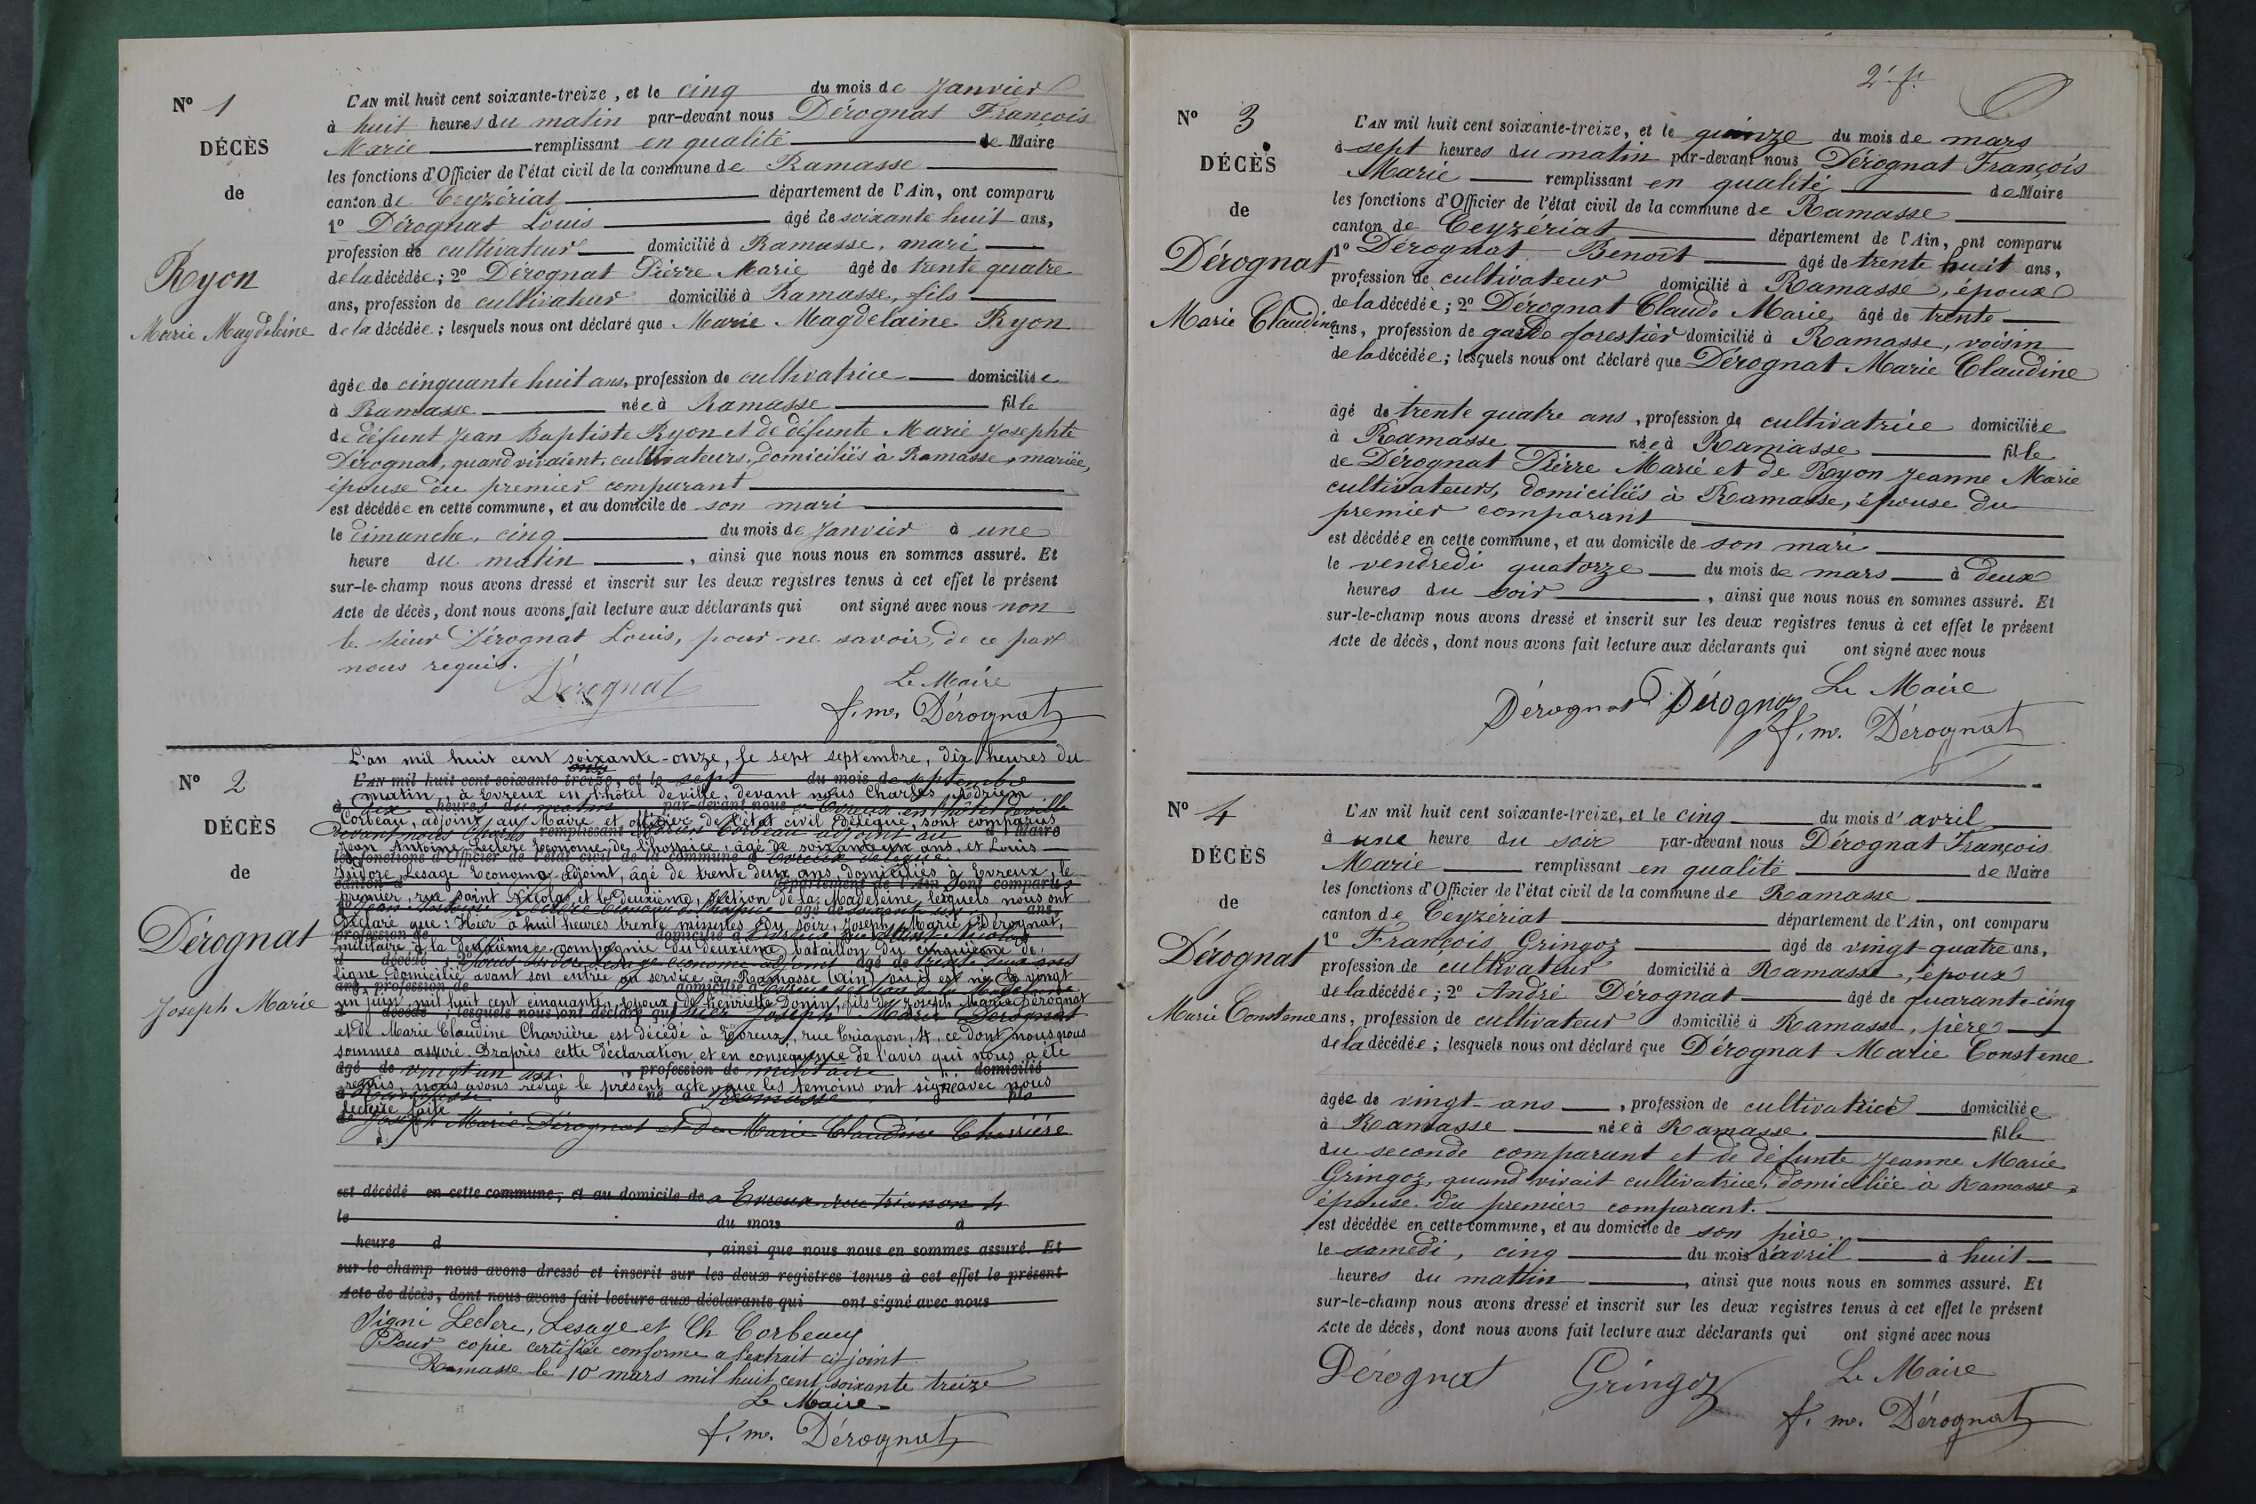 N° 1
DÉCÈS
de
Ryon
Marie Magdeleine
L'AN mil huit cent soixante-treize, et le cinq du mois de Janvier
à huit heures du matin par-devant nous Dérognat François
Marie remplissant en qualité de Maire
les fonctions d'Officier de l'état civil de la commune de Ramasse
canton de Ceyzériat département de l'Ain, ont comparu
1° Dérognat Louis âgé de soixante huit ans,
profession de cultivateur domicilié à Ramasse, mari
de la décédée; 2° Dérognat Pierre Marie âgé de trente quatre
ans, profession de cultivateur domicilié à Ramasse, fils
de la décédée; lesquels nous ont déclaré que Marie Magdelaine Ryon
âgée de cinquante huit ans, profession de cultivatrice domiciliée
à Ramasse née à Ramasse fille
de défunt Jean Baptiste Ryon et de défunte Marie Josephte
Dérognat, quand vivaient, cultivateurs, domiciliés à Ramasse, mariée,
épouse du premier comparant
est décédée en cette commune, et au domicile de son mari
le dimanche, cinq du mois de Janvier à une
heure du matin, ainsi que nous nous en sommes assuré. Et
sur-le-champ nous avons dressé et inscrit sur les deux registres tenus à cet effet le présent
Acte de décès, dont nous avons fait lecture aux déclarants qui ont signé avec nous non
le sieur Dérognat Louis, pour ne savoir, de ce par
nous requis.
Dérognat
Le Maire
f. m. Dérognat
N° 2
DÉCÈS
de
Dérognat
Joseph Marie
L'an mil huit cent soixante-onze, le sept septembre, dix heures du
L'AN mil huit cent soixante-treize, et le sept du mois de septembre
matin, à Evreux en l'hôtel de ville, devant nous Charles Adrien
à dix heures du matin par-devant nous à Evreux en l'hôtel de ville
Corbeau, adjoint au Maire et officier de l'état civil délégué, sont comparus
devant nous Charles remplissant Adrien Corbeau adjoint au d Maire
Jean Antoine Leclere Econome de l'hospice, âgé de soixante un ans, et Louis
les fonctions d'Officier de l'état civil de la commune d Evreux délégué
Isidore Lesage Econome-Adjoint, âgé de trente deux ans, domiciliés à Evreux, le
canton d département de l'Ain, ont comparu
premier, rue Saint Nicolas et le deuxième, section de la Madeleine, lesquels nous ont
1° Jean Antoine Leclere Econome de l'hospice âgé de soixante un ans,
déclaré que: Hier à huit heures trente minutes du soir, Joseph Marie Dérognat,
profession de domicilié à Evreux rue Saint Nicolas
militaire à la deuxième compagnie du deuxième bataillon du cinquième de
d décédé; 2° Louis Isidore Lesage econome adjoint âgé de trente deux ans
ligne domicilié avant son entrée au service à Ramasse (Ain) où il est né le vingt
ans, profession de domicilié à Evreux section de la Madeleine
un juin, mil huit cent cinquante, époux de Henriette Donin, fils de Joseph Marie Dérognat
d décédé; lesquels nous ont déclaré que hier Joseph Marie Dérognat
et de Marie Claudine Charrière, est décédé à Evreux, rue Trianon, 4, ce dont nous nous
sommes assuré. D'après cette déclaration et en conséquence de l'avis qui nous a été
âgé de vingt un ans, profession de militaire domicilié
remis, nous avons rédigé le présent acte, que les témoins ont signé avec nous
à Ramasse né à Ramasse fils
lecture faite
de Joseph Marie Dérognat et de Marie Claudine Charrière
est décédé en cette commune, et au domicile de à Evreux rue trianon 4
le du mois d
heure d, ainsi que nous nous en sommes assuré. Et
sur-le-champ nous avons dressé et inscrit sur les deux registres tenus à cet effet le présent
Acte de décès, dont nous avons fait lecture aux déclarants qui ont signé avec nous
Signé Leclere, Lesage et Ch Corbeau
Pour copie certifiée conforme a l'extrait ci joint
Ramasse le 10 mars mil huit cent soixante treize
Le Maire
f. m. Dérognat
2e f.
N° 3
DÉCÈS
de
Dérognat
Marie Claudine
L'AN mil huit cent soixante-treize, et le quinze du mois de mars
à sept heures du matin par-devant nous Dérognat François
Marie remplissant en qualité de Maire
les fonctions d'Officier de l'état civil de la commune de Ramasse
canton de Ceyzériat département de l'Ain, ont comparu
1° Dérognat Benoît âgé de trente huit ans,
profession de cultivateur domicilié à Ramasse, époux
de la décédée; 2° Dérognat Claude Marie, âgé de trente
ans, profession de garde forestier domicilié à Ramasse, voisin
de la décédée; lesquels nous ont déclaré que Dérognat Marie Claudine
âgé de trente quatre ans, profession de cultivatrice domiciliée
à Ramasse née à Ramasse fille
de Dérognat Pierre Marie et de Ryon Jeanne Marie
cultivateurs, domiciliés à Ramasse, épouse du
premier comparant
est décédée en cette commune, et au domicile de son mari
le vendredi quatorze du mois de mars à deux
heures du soir, ainsi que nous nous en sommes assuré. Et
sur-le-champ nous avons dressé et inscrit sur les deux registres tenus à cet effet le présent
Acte de décès, dont nous avons fait lecture aux déclarants qui ont signé avec nous
Dérognat Dérognat
Le Maire
f. m. Dérognat
N° 4
DÉCÈS
de
Dérognat
Marie Constence
L'AN mil huit cent soixante-treize, et le cinq du mois d'avril
à une heure du soir par-devant nous Dérognat François
Marie remplissant en qualité de Maire
les fonctions d'Officier de l'état civil de la commune de Ramasse
canton de Ceyzériat département de l'Ain, ont comparu
1° François Gringoz âgé de vingt-quatre ans,
profession de cultivateur domicilié à Ramasse, époux
de la décédée; 2° André Dérognat âgé de quarante-cinq
ans, profession de cultivateur domicilié à Ramasse, père
de la décédée; lesquels nous ont déclaré que Dérognat Marie Constence
âgée de vingt-ans, profession de cultivatrice domiciliée
à Ramasse née à Ramasse fille
du seconde comparant et de défunte Jeanne Marie
Gringoz, quand vivait cultivatrice, domiciliée à Ramasse,
épouse du premier comparant.
est décédée en cette commune, et au domicile de son père.
le samedi, cinq du mois d'avril à huit
heures du matin, ainsi que nous nous en sommes assuré. Et
sur-le-champ nous avons dressé et inscrit sur les deux registres tenus à cet effet le présent
Acte de décès, dont nous avons fait lecture aux déclarants qui ont signé avec nous
Dérognat Gringoz
Le Maire
f. m. Dérognat